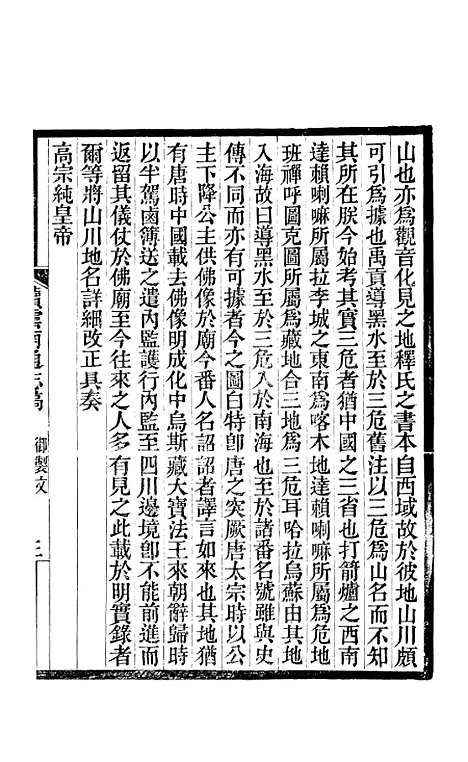 山也亦爲觀音化見之地釋氏之書本自西域故於彼地山川頗
可引爲據也禹貢導黑水至於三危舊注以三危爲山名而不知
其所在朕今始考其實三危者猶中國之三省也打箭爐之西南
達賴喇嘛所屬爲拉李城之東南爲喀木地達賴喇嘛所屬爲危地
班禪呼圖克圖所屬爲藏地合三地爲三危耳哈拉烏蘇由其地
入海故曰導黑水至於三危入於南海也至於諸番名號雖與史
傳不同而亦有可據者今之圖白特卽唐之突厥唐太宗時以公
主下降公主供佛像於廟今番人名詔詔者譯言如來也其地猶
有唐時中國載去佛像明成化中烏斯藏大寶法王來朝辭歸時
以半駕鹵簿送之遣內監護行內監至四川邊境卽不能前進而
返留其儀仗於佛廟至今往來之人多有見之此載於明實錄者
爾等將山川地名詳細改正具奏
高宗純皇帝
續雲南通志稿
御製文
三